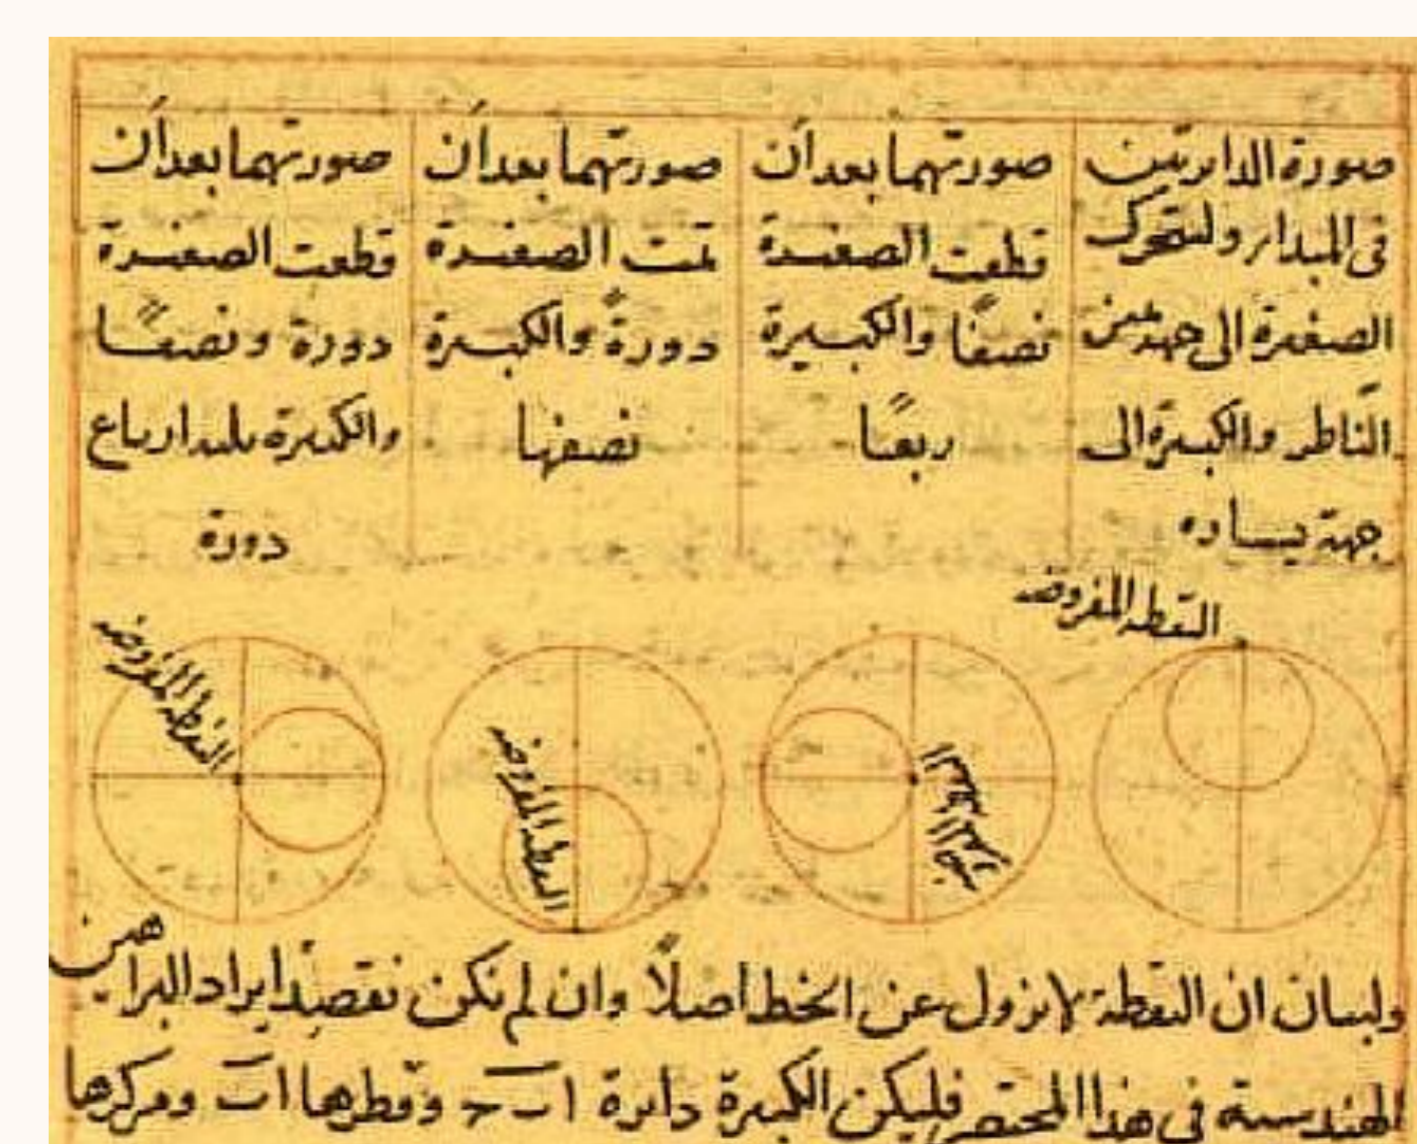 صورة الدايرتين
فى المبدا ولتتحرك
الصغيرة الى جهة يمين
النّاظر والكبيرة الى
جهة يساره
صورتهما بعد أن
قطعت الصغيرة
نصفًا والكبيرة
ربعًا
صورتهما بعد أن
تمت الصغيرة
دورةً والكبيرة
نصفها
صورتهما بعد أن
قطعت الصغيرة
دورة ونصفًا
والكبيرة ثلثة ارباع
دورة
النقطة المفروضة
النقطة المفروضة
النقطة المفروضة
النقطة المفروضة
ولبيان ان النقطة لا تزول عن الخط اصلاً وان لم نكن نقصد ايراد البراهين
الهندسية فى هذا المختصر فليكن الكبيرة دايرة ا ب ج وقطرها ا ب ومركزها